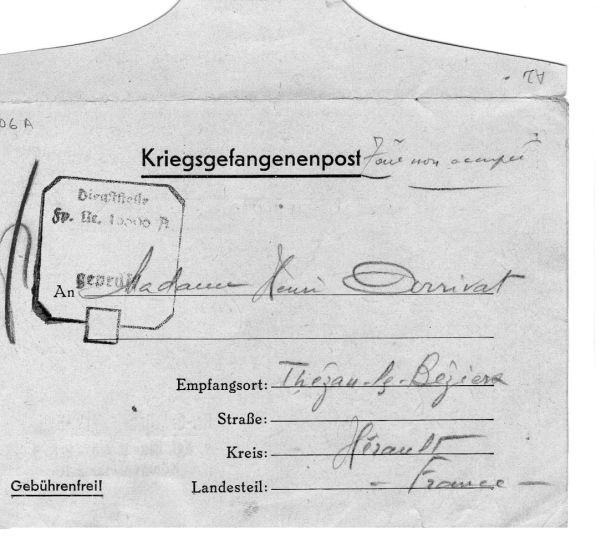 06A
Kriegsgefangenenpost Zone non occupée
Dienststelle
Fp. Nr.
geprüft
An Madame Henri Dorrivat
Empfangsort: Thézan-ls-Béziers
Straße:
Kreis: Hérault
Gebührenfrei!
Landesteil: - France -